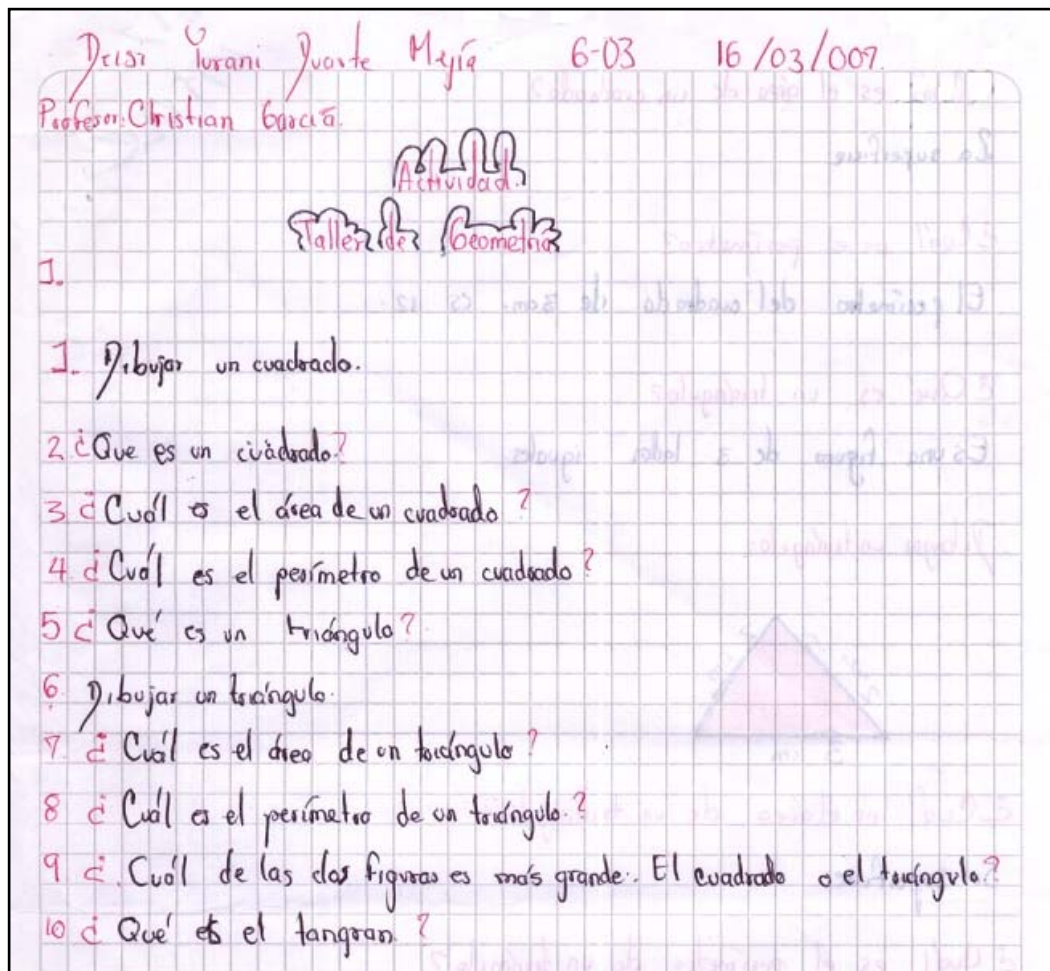 Deisi Yurani Duarte Mejía 6-03 16/03/009.
Profesor: Christian García.
Actividad.
Taller de Geometría
1.
1. Dibujar un cuadrado.
2. ¿Que es un cuadrado?
3 ¿Cuál es el área de un cuadrado?
4. ¿Cuál es el perímetro de un cuadrado?
5 ¿Qué es un triángulo?
6. Dibujar un triángulo.
7. ¿Cuál es el área de un triángulo?
8 ¿Cuál es el perímetro de un triángulo?
9 ¿Cuál de las dos figuras es más grande. El cuadrado o el triángulo?
10 ¿Qué es el tangran?